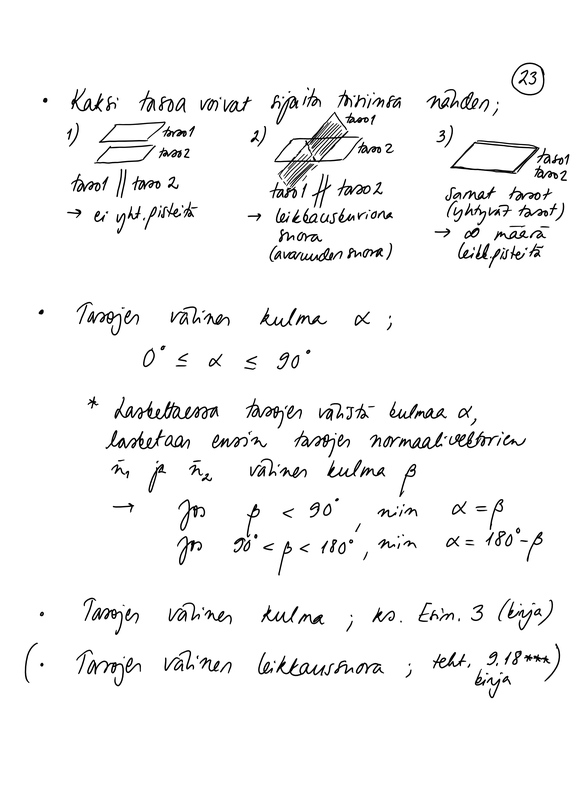 23
• Kaksi tasoa voivat sijaita toisiinsa nähden;
1) taso1
taso2
taso1 || taso 2
→ ei yht. pisteitä
2) taso1
taso2
taso1 ∦ taso2
→ leikkauskuviona
suora
(avaruuden suora)
3) taso1
taso2
samat tasot
(yhtyvät tasot)
→ ∞ määrä
leikk.pisteitä
• Tasojen välinen kulma α ;
0° ≤ α ≤ 90°
* Laskettaessa tasojen välistä kulmaa α,
lasketaan ensin tasojen normaalivektorien
n̄₁ ja n̄₂ välinen kulma β
→ Jos β < 90°, niin α = β
Jos 90° < β < 180°, niin α = 180° - β
• Tasojen välinen kulma ; ks. Esim. 3 (kirja)
(• Tasojen välinen leikkaussuora ; teht. 9.18***)
kirja